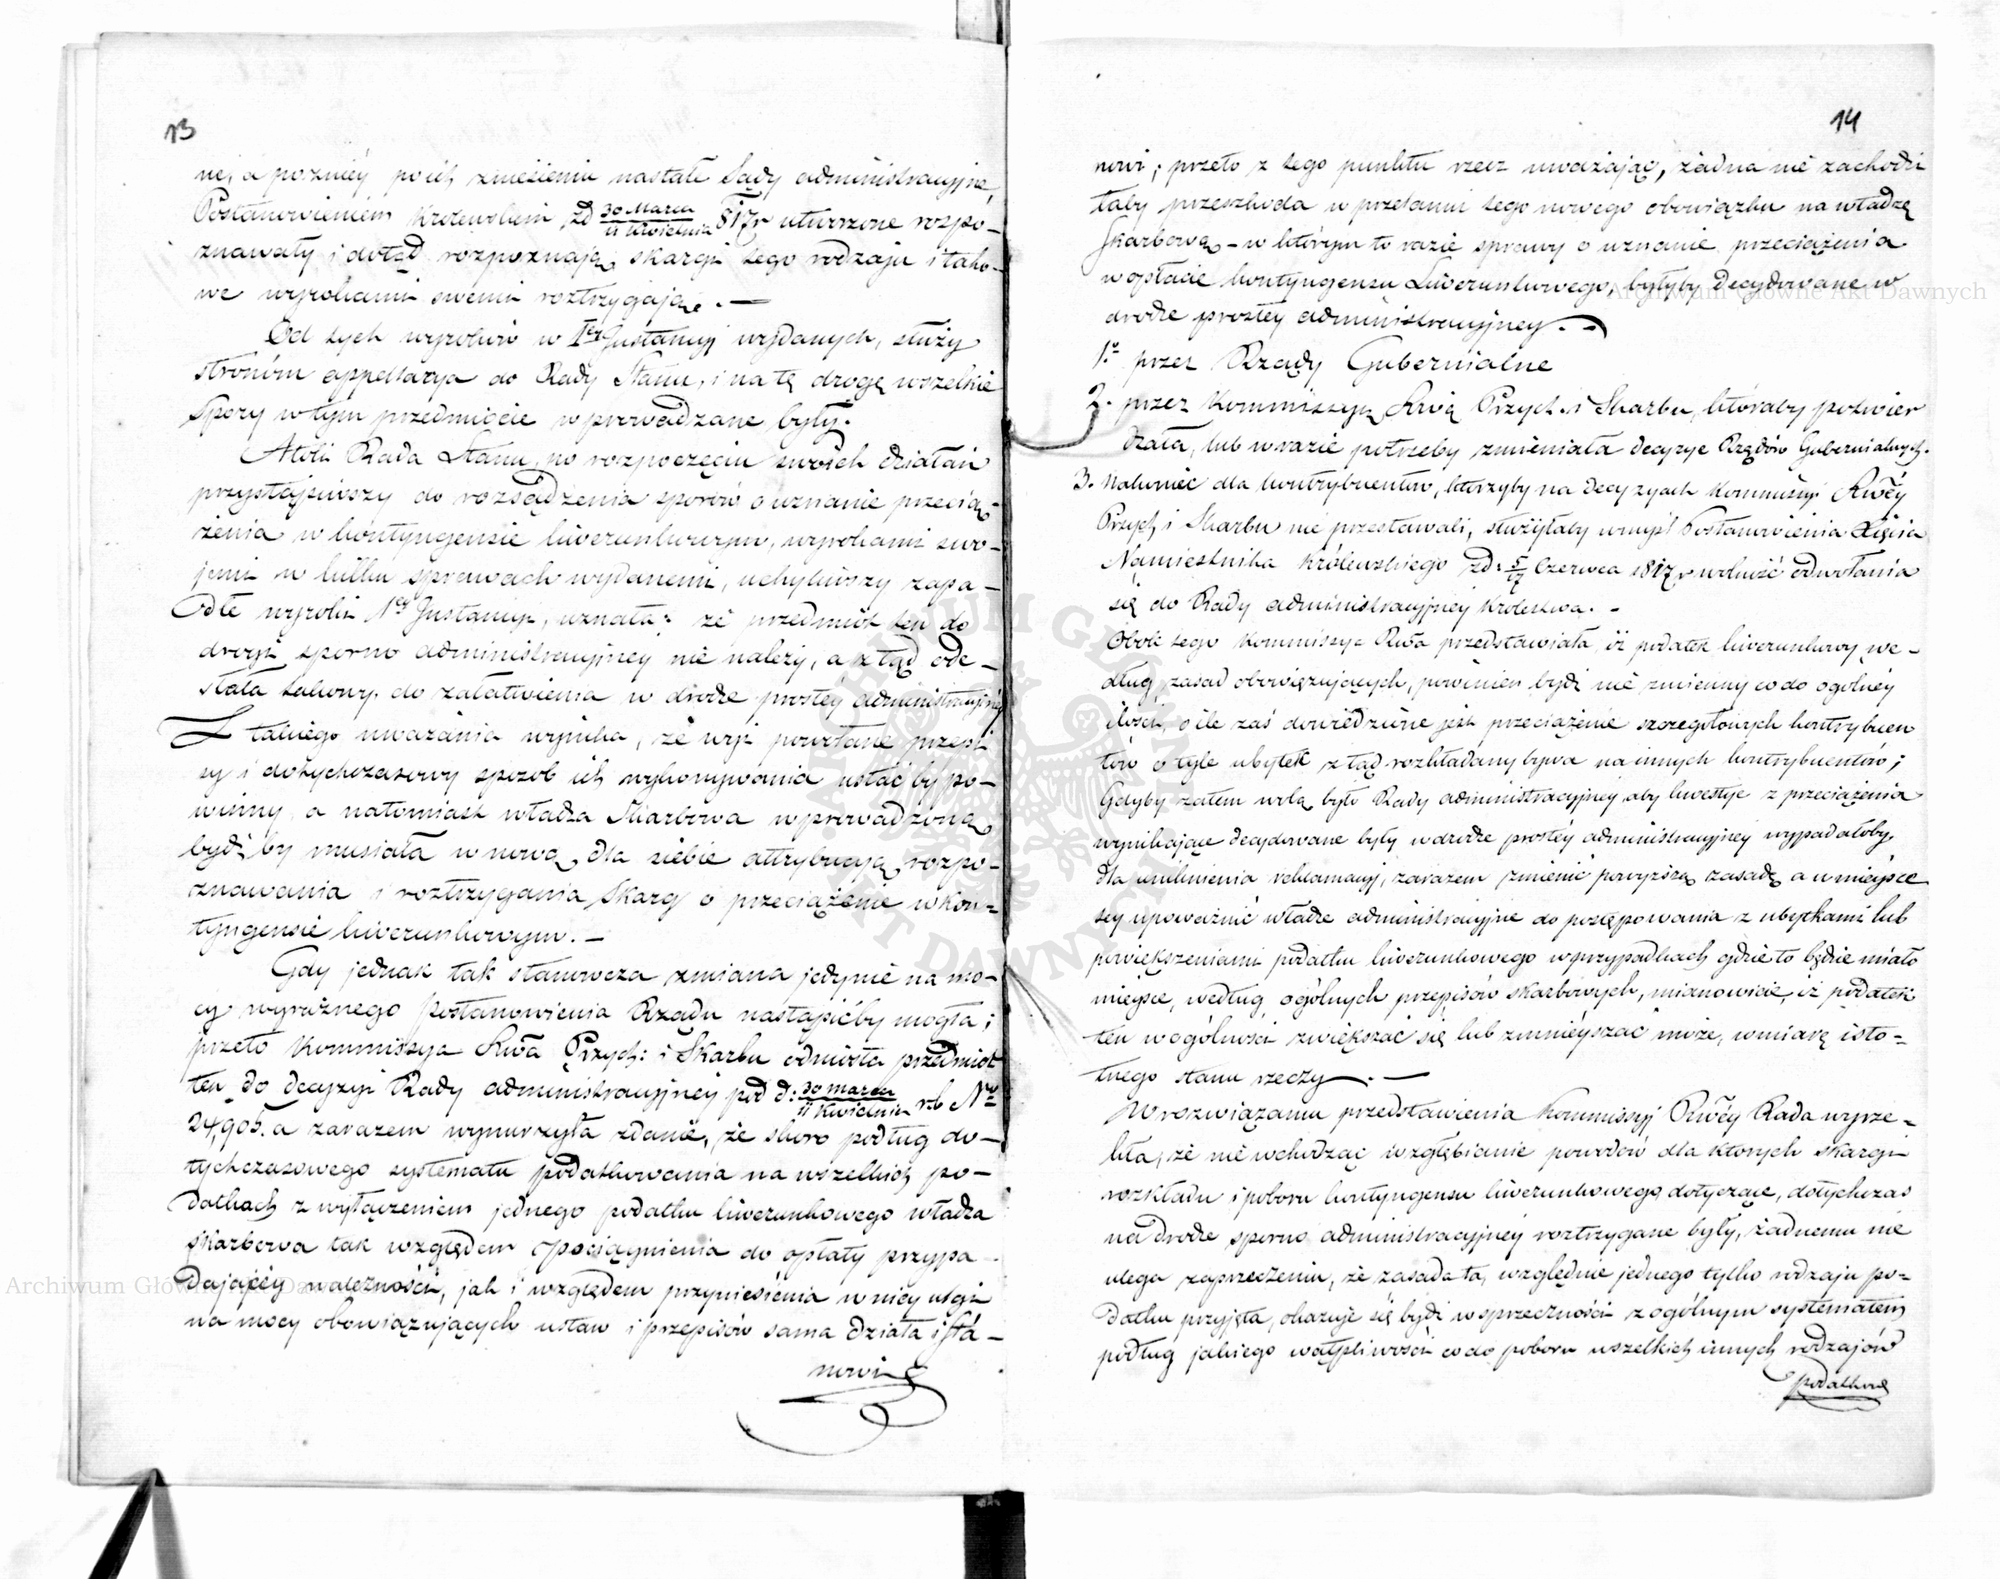 13
ne, a pozniéy po ich zniesieniu nastałe Sądy administracyjne,
Postanowieniem Krolewskiem zd 30 Marca / 11 Kwietnia 817r utworzone rozpo-
znawały i dotąd rozpoznają skargi tego rodzaju i tako-
we wyrokami swemi roztrzygają. —
Od tych wyroków w Iey Instancyi wydanych, służy
stronóm appellacya do Rady Stanu, i na tę drogę wszelkie
spory w tym przedmiocie wprowadzane były.
Atoli Rada Stanu, po rozpoczęciu swoich działań
przystąpiwszy do rozsądzenia sporów o uznanie przecią-
żenia w kontyngensie liwerunkowym, wyrokami swo-
jemi w kilku sprawach wydanemi, uchyliwszy zapa-
dłe wyroki Iey Instancyi, uznała: że przedmiot ten do
drogi sporno administracyjney nie należy, a ztąd ode-
słała takowy do załatwienia w drodze prostéy administracyjnéy
Z takiego uważania wynika, że wyż powołane przepi
sy i dotychczasowy sposób ich wykonywania ustać by po-
winny, a natomiast władza Skarbowa wprowadzoną
bydź by musiała w nową dla siebie attrybucyą rozpo-
znawania i roztrzygania skarg o przeciążenie w kon-
tyngensie liwerunkowym. —
Gdy jednak tak stanowcza zmiana jedynie na mo-
cy wyraźnego postanowienia Rządu nastąpićby mogła;
przeto Kommissya Rwa Przych: i Skarbu odniosła przedmiot
ten do decyzyi Rady administracyjney pod d: 30 marca / 11 Kwietnia r.b No
24,905. a zarazem wynurzyła zdanie, że skoro podług do-
tychczasowego systematu podatkowania na wszelkich po-
datkach z wyłączeniem jednego podatku liwerunkowego władza
skarbowa tak względem pociągnienia do opłaty przypa-
dającéy należności, jak i względem przyniesienia w niéy ulgi
na mocy obowiązujących ustaw i przepisów sama działa i sta-
nowi
14
nowi; przeto z tego punktu rzecz uważając, żadna nie zachodzi
łaby przeszkoda w przelaniu tego nowego obowiązku na władzę
Skarbową - w którym to razie sprawy o uznanie przeciążenia
w opłacie kontyngensu Liwerunkowego, byłyby decydowane w
drodze prostéy administracyjney. -
1.o przez Rządy Gubernialne
2. przez Kommissyą Rwą Przych. i Skarbu, któraby potwier
dzała, lub w razie potrzeby zmieniała decyzye Rządów Gubernialnych.
3. Nakoniec dla kontrybuentów, którzyby na decyzyach Kommissyi Rwéy
Przych i Skarbu nie przestawali, służyłaby w myśl Postanowienia Xięcia
Namiestnika Królewskiego zd: 5/17 Czerwca 1817r wolność odwołania
się do Rady administracyjnéy Krolestwa. -
Obok tego Kommissya Rwa przedstawiała, iż podatek liwerunkowy we-
dług zasad obowiązujących, powinien bydź nie zmienny co do ogólnéy
ilości, o ile zaś dowiedzione jest przeciążenie szczegółowych kontrybuen
tów o tyle ubytek ztąd rozkładany bywa na innych kontrybuentów;
Gdyby zatem wolą było Rady administracyjnéy, aby kwestye z przeciążenia
wynikające decydowane były w drodze prostéy administracyjnéy wypadałoby,
dla uniknienia reklamacyj, zarazem zmienić powyższą zasadę a w miejsce
téy upoważnić władze administracyjne do postępowania z ubytkami lub
powiększeniami podatku liwerunkowego w przypadkach gdzie to będzie miało
mieysce, według ogólnych przepisów skarbowych, mianowicie, iż podatek
ten w ogólności zwiększać się lub zmniéyszać może, w miarę isto-
tnego stanu rzeczy. —
W rozwiązaniu przedstawienia Kommissyi Rwéy Rada wyrze-
kła, że nie wchodząc w zgłębianie powodów dla ktorych skargi
rozkładu i poboru kontyngensu liwerunkowego dotyczące, dotychczas
na drodze sporno administracyjnéy roztrzygane były, żadnemu nie
ulega zaprzeczeniu, że zasada ta, względnie jednego tylko rodzaju po-
datku przyjęta, okazuje się bydź w sprzeczności z ogólnym systematem,
podług jakiego wątpliwości co do poboru wszelkich innych rodzajów
podatków